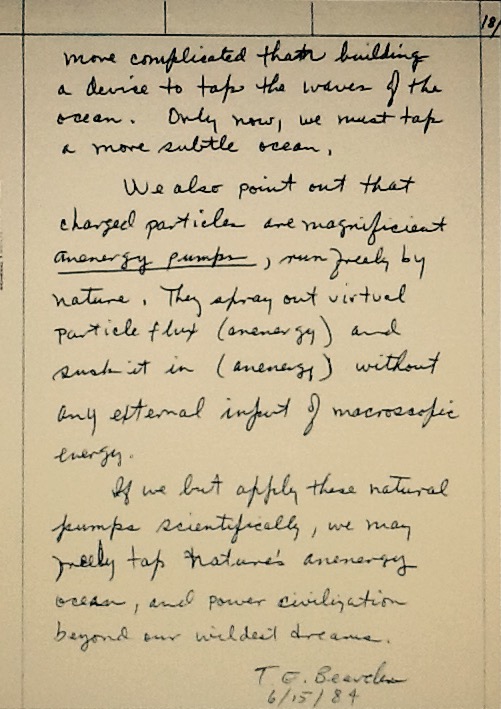 18/
more complicated than building
a device to tap the waves of the
ocean. Only now, we must tap
a more subtle ocean.
We also point out that
charged particles are magnificient
anenergy pumps, run freely by
nature. They spray out virtual
particle flux (anenergy) and
suck it in (anenergy) without
any external input of macroscopic
energy.
If we but apply these natural
pumps scientifically, we may
freely tap Nature's anenergy
ocean, and power civilization
beyond our wildest dreams.
T. E. Bearden
6/15/84